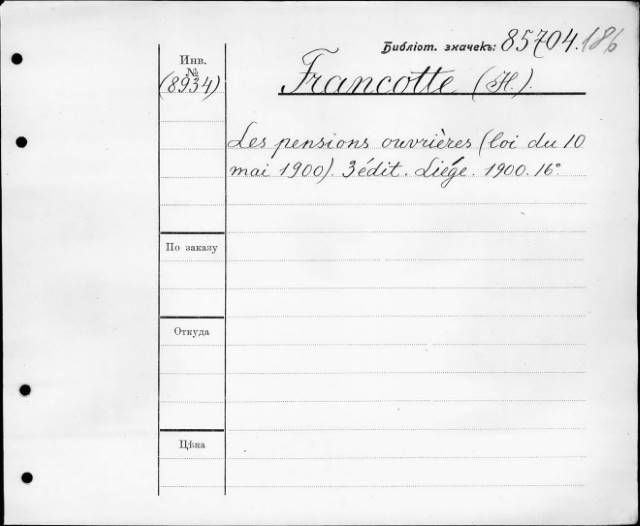 Библіот. значекъ: 85704.186
Инв.
№
(8934)
Francotte (H.).
Les pensions ouvrières (loi du 10
mai 1900). 3 édit. Liége. 1900. 16°
По заказу
Откуда
Цѣна